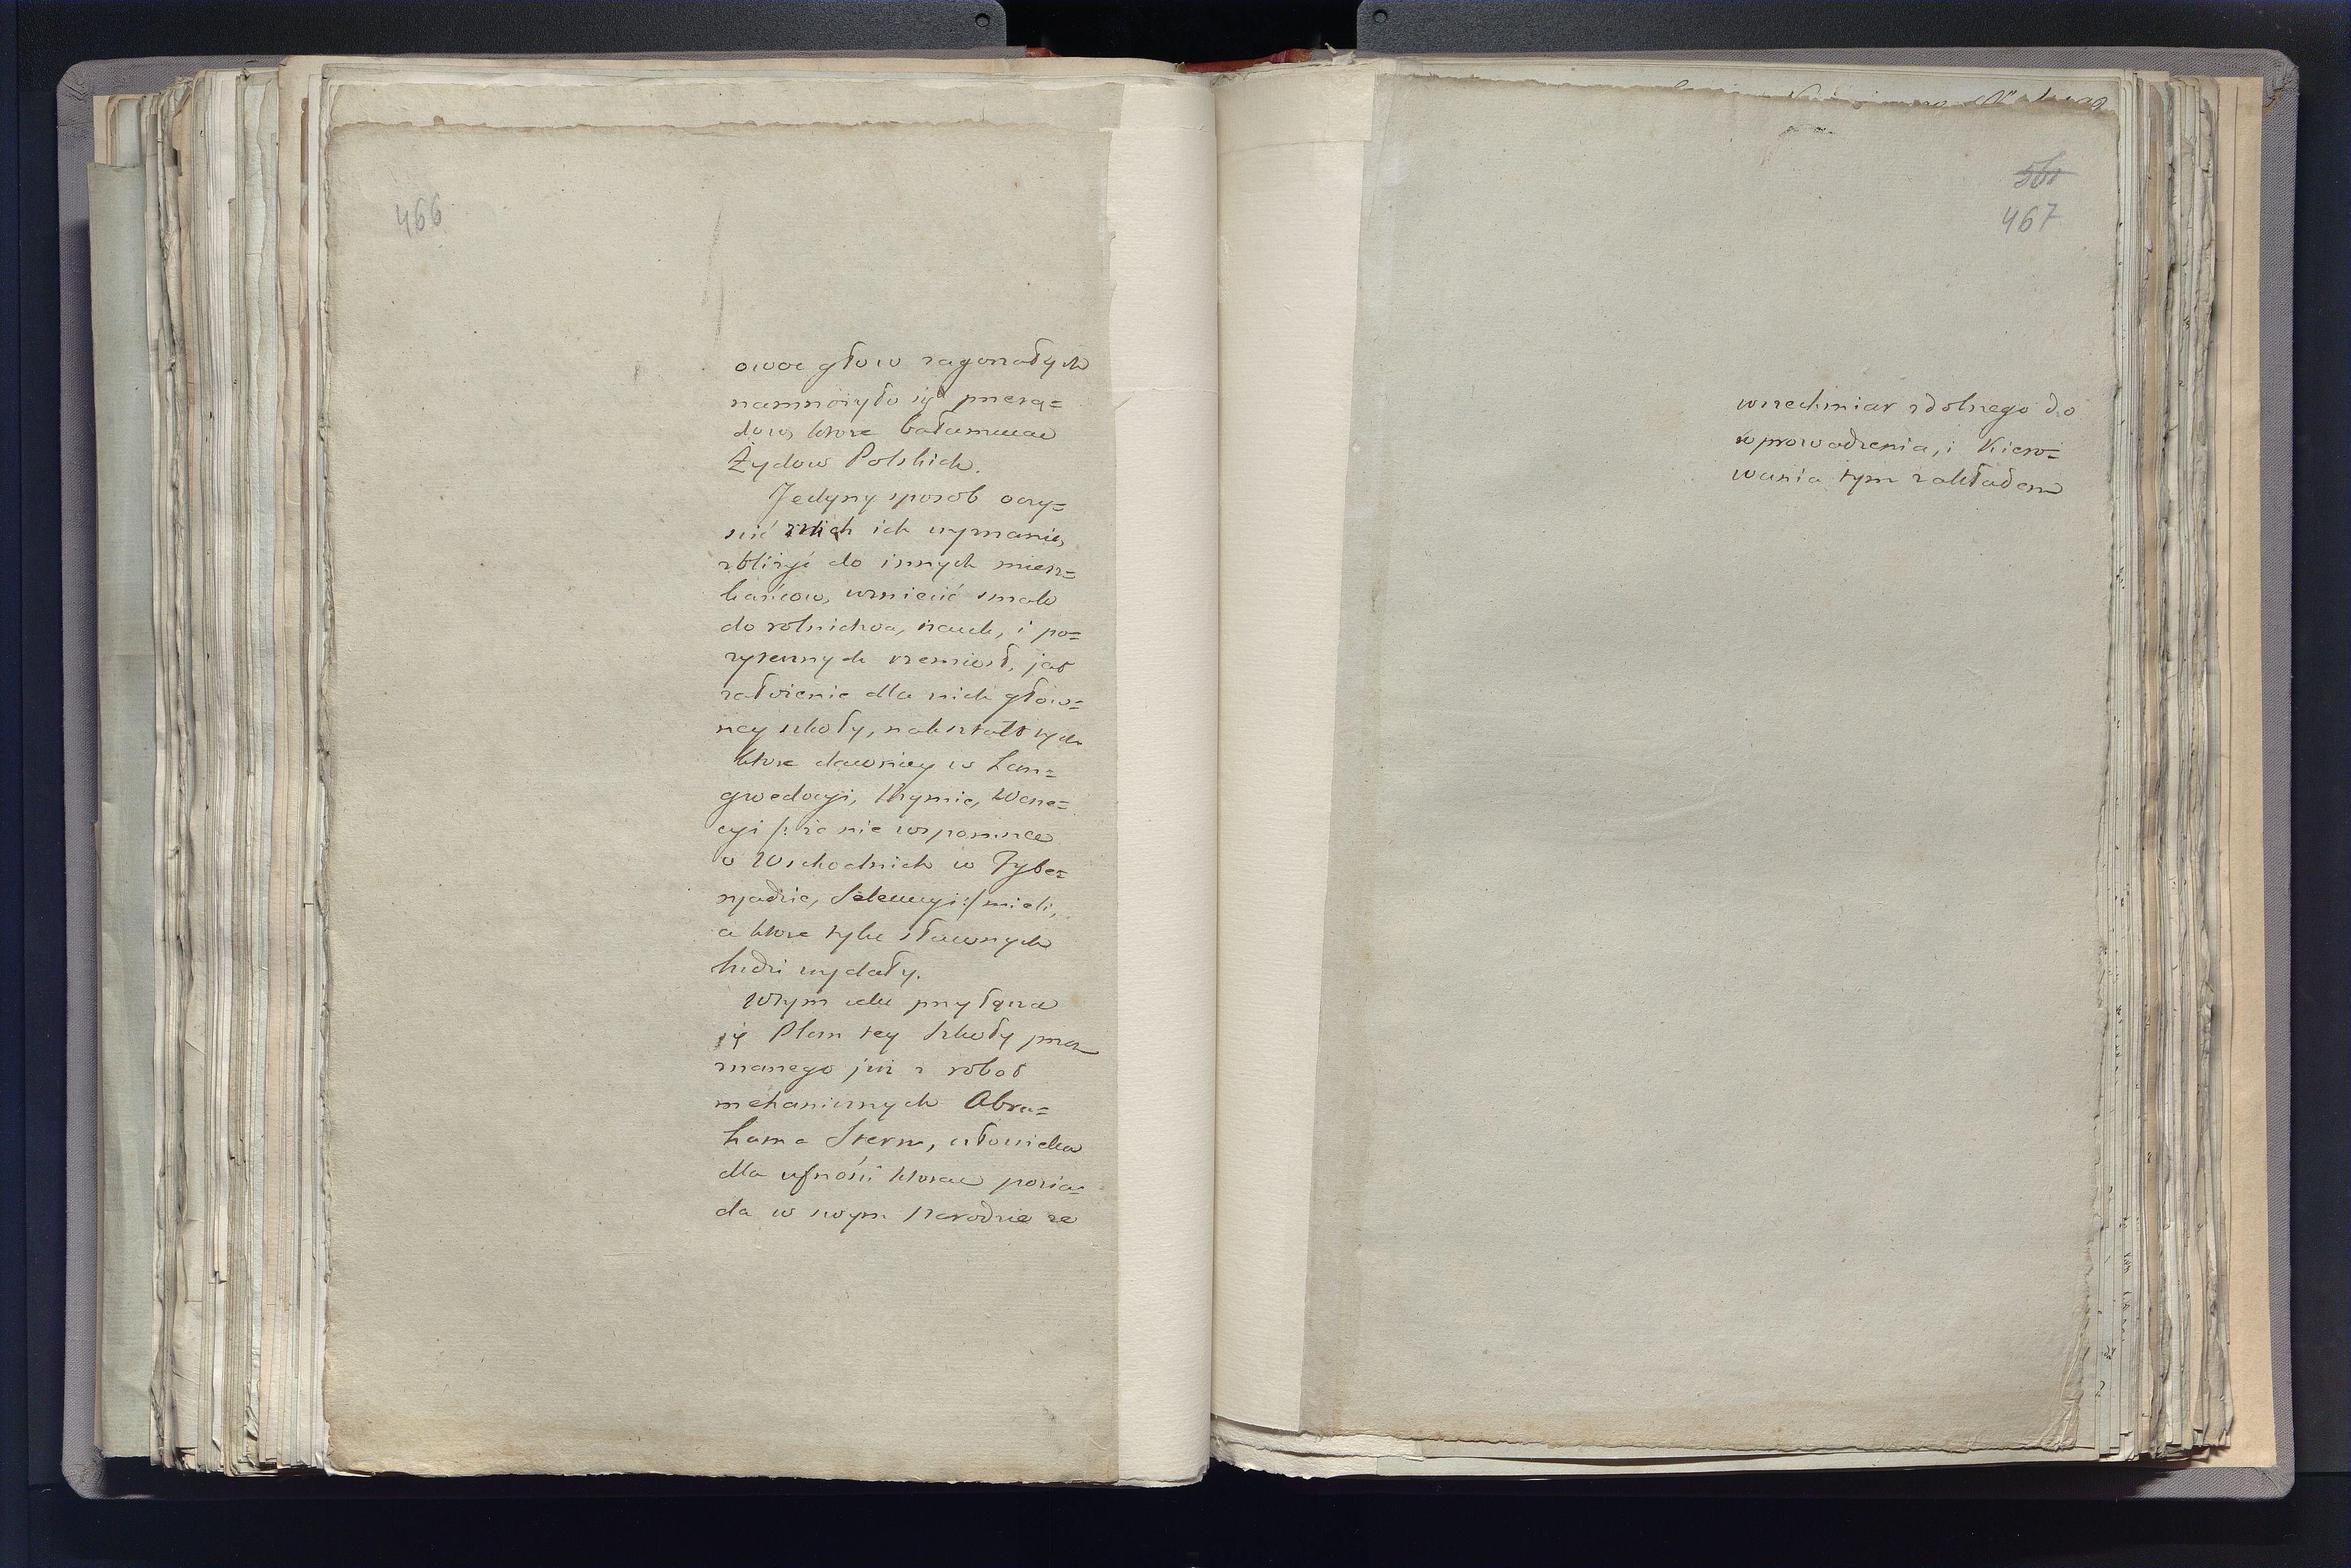 466
owoc głow zagorzałych
namnożyło się przesą=
dow, ktore bałamucą
Żydow Polskich.
Jedyny sposob oczy=
scić z nich ich wyznanie,
zbliżyć do innych miesz=
kańcow, wzniecić smak
do rolnictwa, nauk, i po=
zytecznych rzemiosł, jest
założenie dla nich głow=
ney szkoły, nakształt tych
ktore dawniey w Lan=
gwedocyi, Rzymie, Wene=
cyi /: że nie wspomnę
o Wschodnich w Tybe=
ryadzie, Seleucyi :/ mieli,
a ktore tylu sławnych
ludzi wydały.
W tym celu przyłącza
się Plan tey Szkoły przez
znanego już z robot
mechanicznych Abra=
hama Stern, człowieka
dla ufności ktorą posia=
da w swym Narodzie ze
561
467
wszechmiar zdolnego do
wprowadzenia, i Kiero=
wania tym zakładem